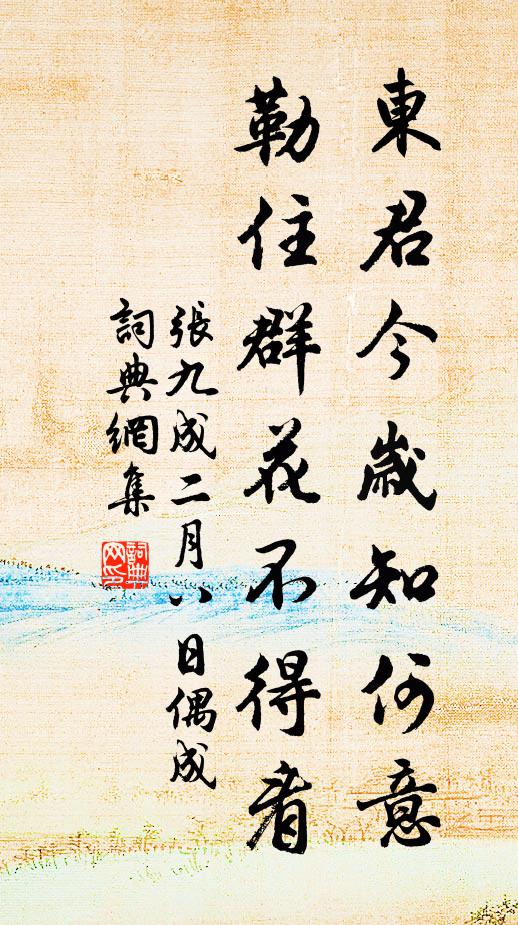 東君今歲知何意
勒住群花不得看
張九成二月八日偶成
詞典網集
詞典
网印